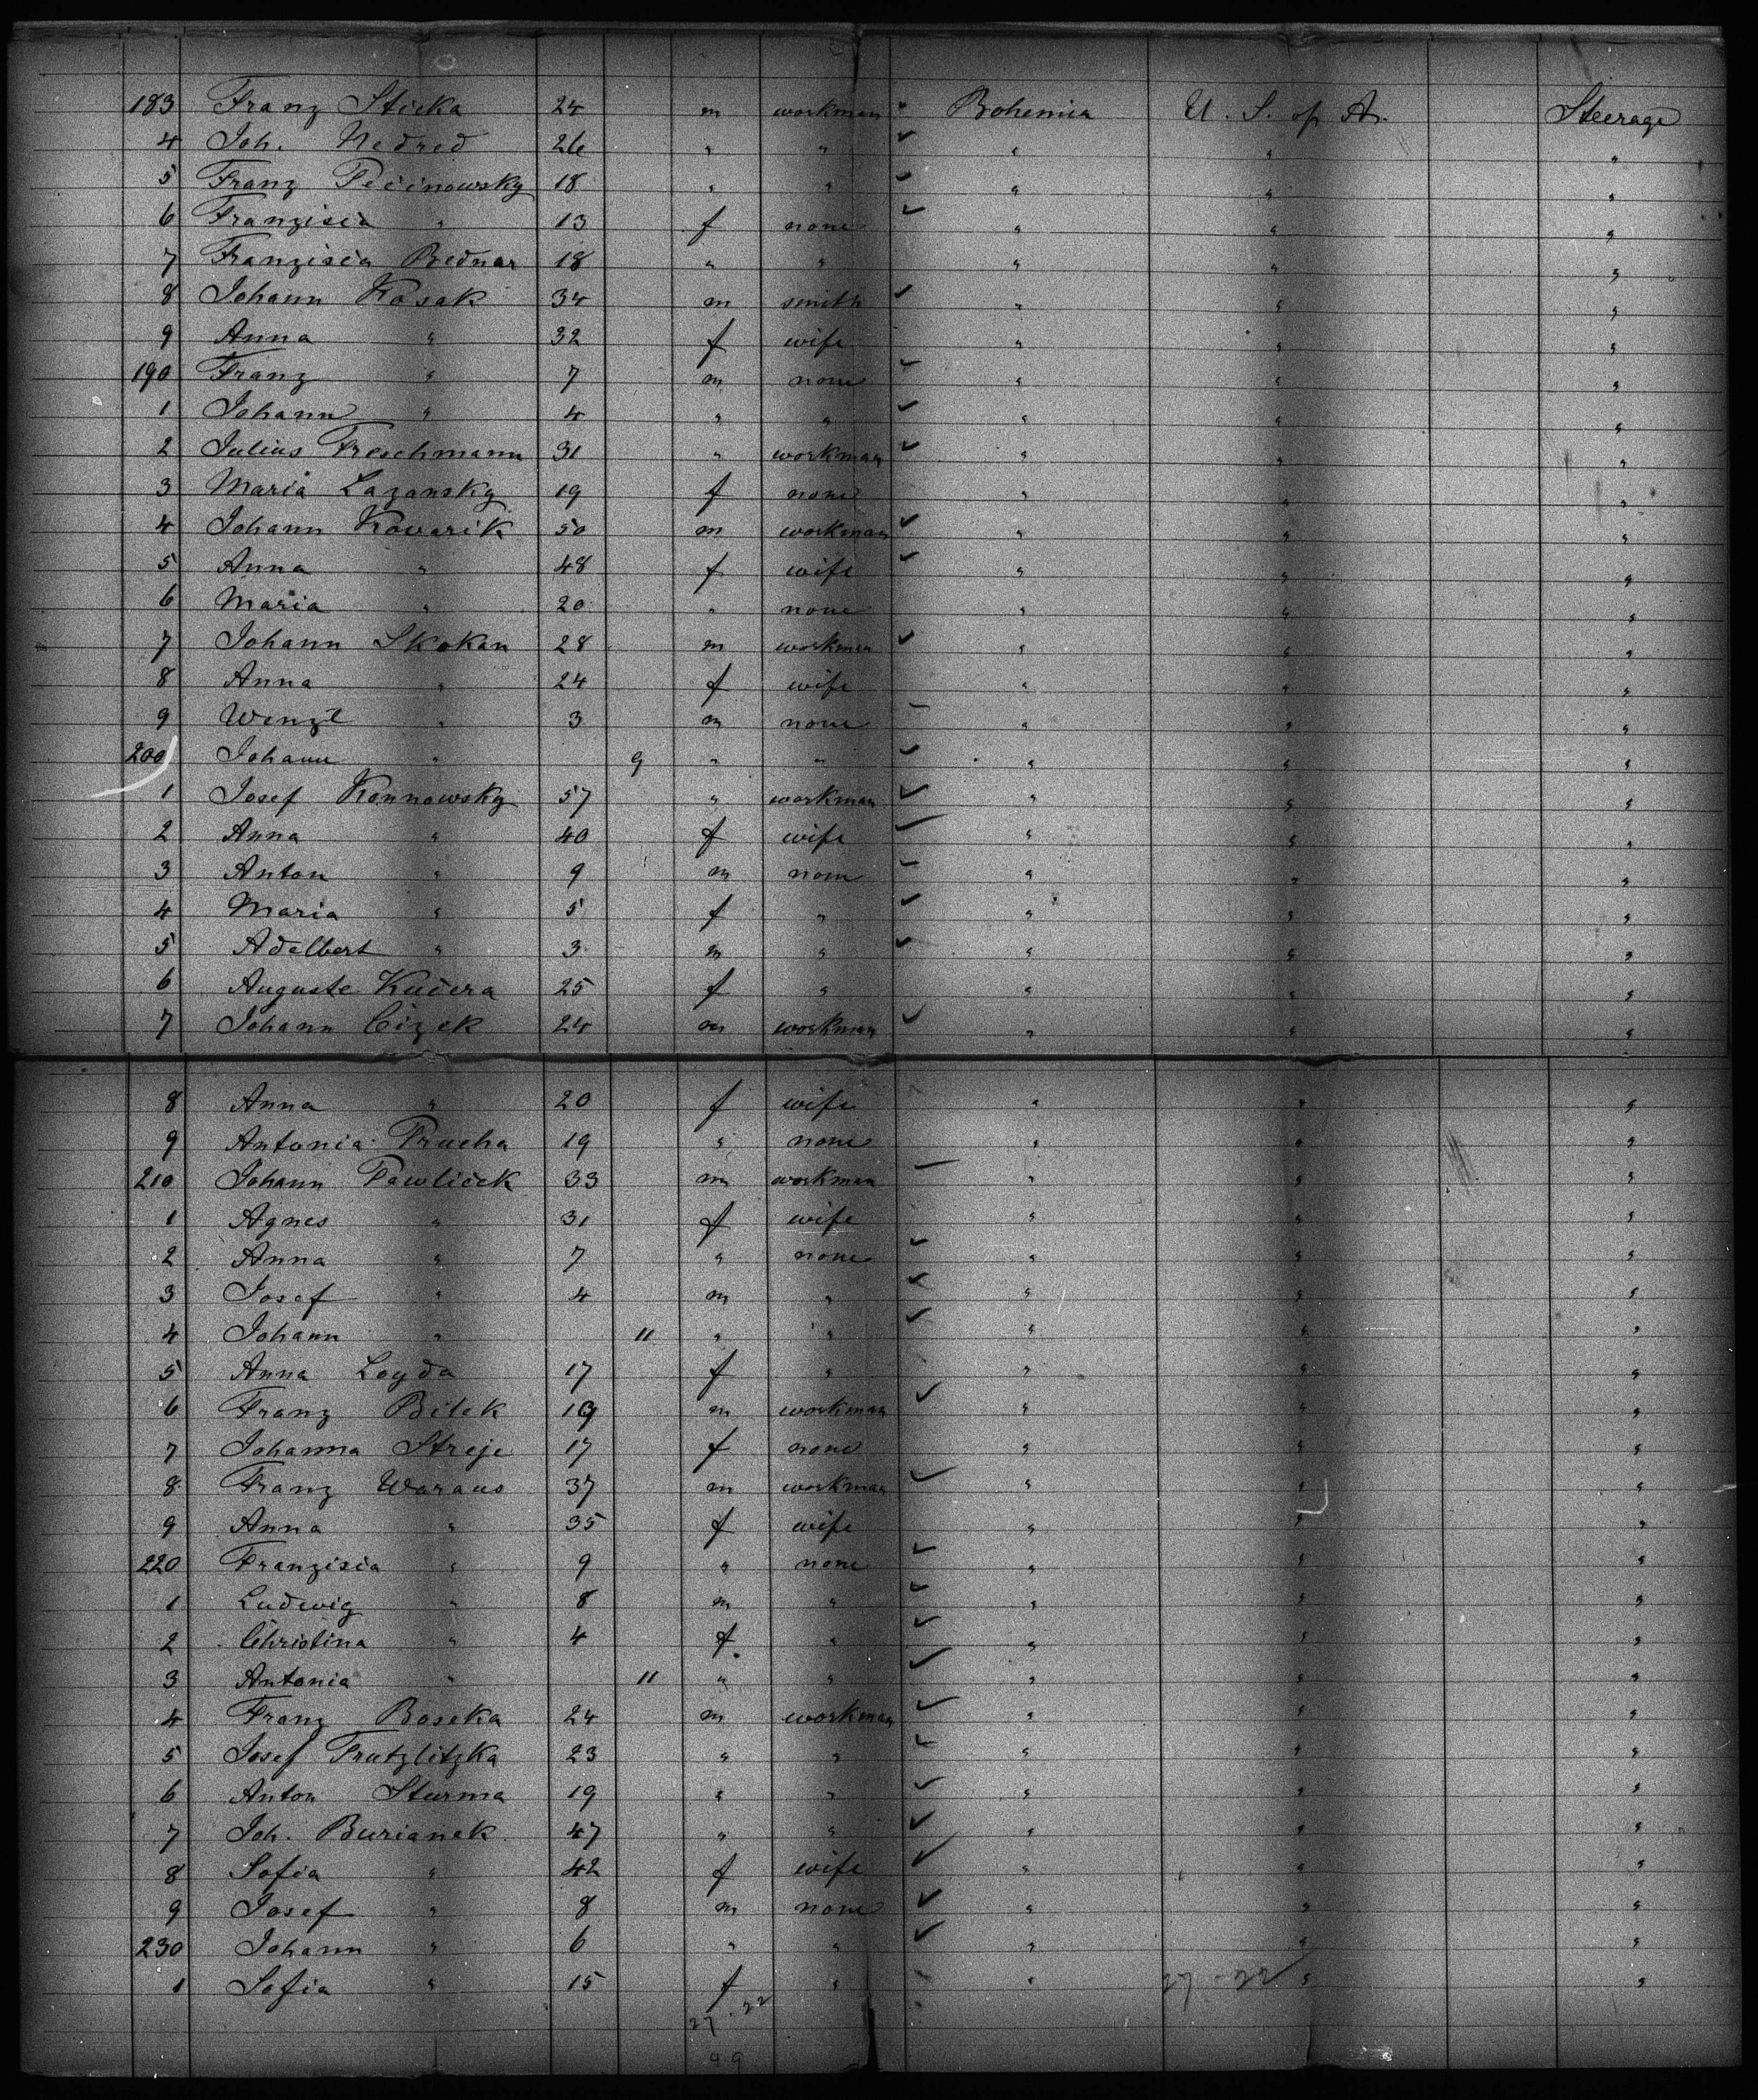 183 Franz Sticka 24 m workman Bohemia U. S. of A. Steerage
4 Joh. Nedred 26 " " " " "
5 Franz Pecinowsky 18 " " " " "
6 Franzisca " 13 f none " " "
7 Franzisca Bednar 18 " " " " "
8 Johann Kosak 34 m smith " " "
9 Anna " 32 f wife " " "
190 Franz " 7 m none " " "
1 Johann " 4 " " " " "
2 Julius Freschmann 31 " workman " " "
3 Maria Lazansky 19 f none " " "
4 Johann Kovarik 50 m workman " " "
5 Anna " 48 f wife " " "
6 Maria " 20 " none " " "
7 Johann Skokan 28 m workman " " "
8 Anna " 24 f wife " " "
9 Wenzl " 3 m none " " "
200 Johann " 9 " " " " "
1 Josef Konnowsky 57 " workman " " "
2 Anna " 40 f wife " " "
3 Anton " 9 m none " " "
4 Maria " 5 f " " " "
5 Adelbert " 3 m " " " "
6 Auguste Kučera 25 f " " " "
7 Johann Cizek 24 m workman " " "
8 Anna " 20 f wife " " "
9 Antonia Prucha 19 " none " " "
210 Johann Pawliček 33 m workman " " "
1 Agnes " 31 f wife " " "
2 Anna " 7 " none " " "
3 Josef " 4 m " " " "
4 Johann " 11 " " " " "
5 Anna Loyda 17 f " " " "
6 Franz Bilek 19 m workman " " "
7 Johanna Streje 17 f none " " "
8 Franz Waraus 37 m workman " " "
9 Anna " 35 f wife " " "
220 Franzisca " 9 " none " " "
1 Ludewig " 8 m " " " "
2 Christina " 4 f " " " "
3 Antonia " 11 " " " " "
4 Franz Boseka 24 m workman " " "
5 Josef Trutzlitzka 23 " " " " "
6 Anton Sturma 19 " " " " "
7 Joh. Burianek 47 " " " " "
8 Sofia " 42 f wife " " "
9 Josef " 8 m none " " "
230 Johann " 6 " " " " "
1 Sofia " 15 f " " 27-22 " "
27-22
49